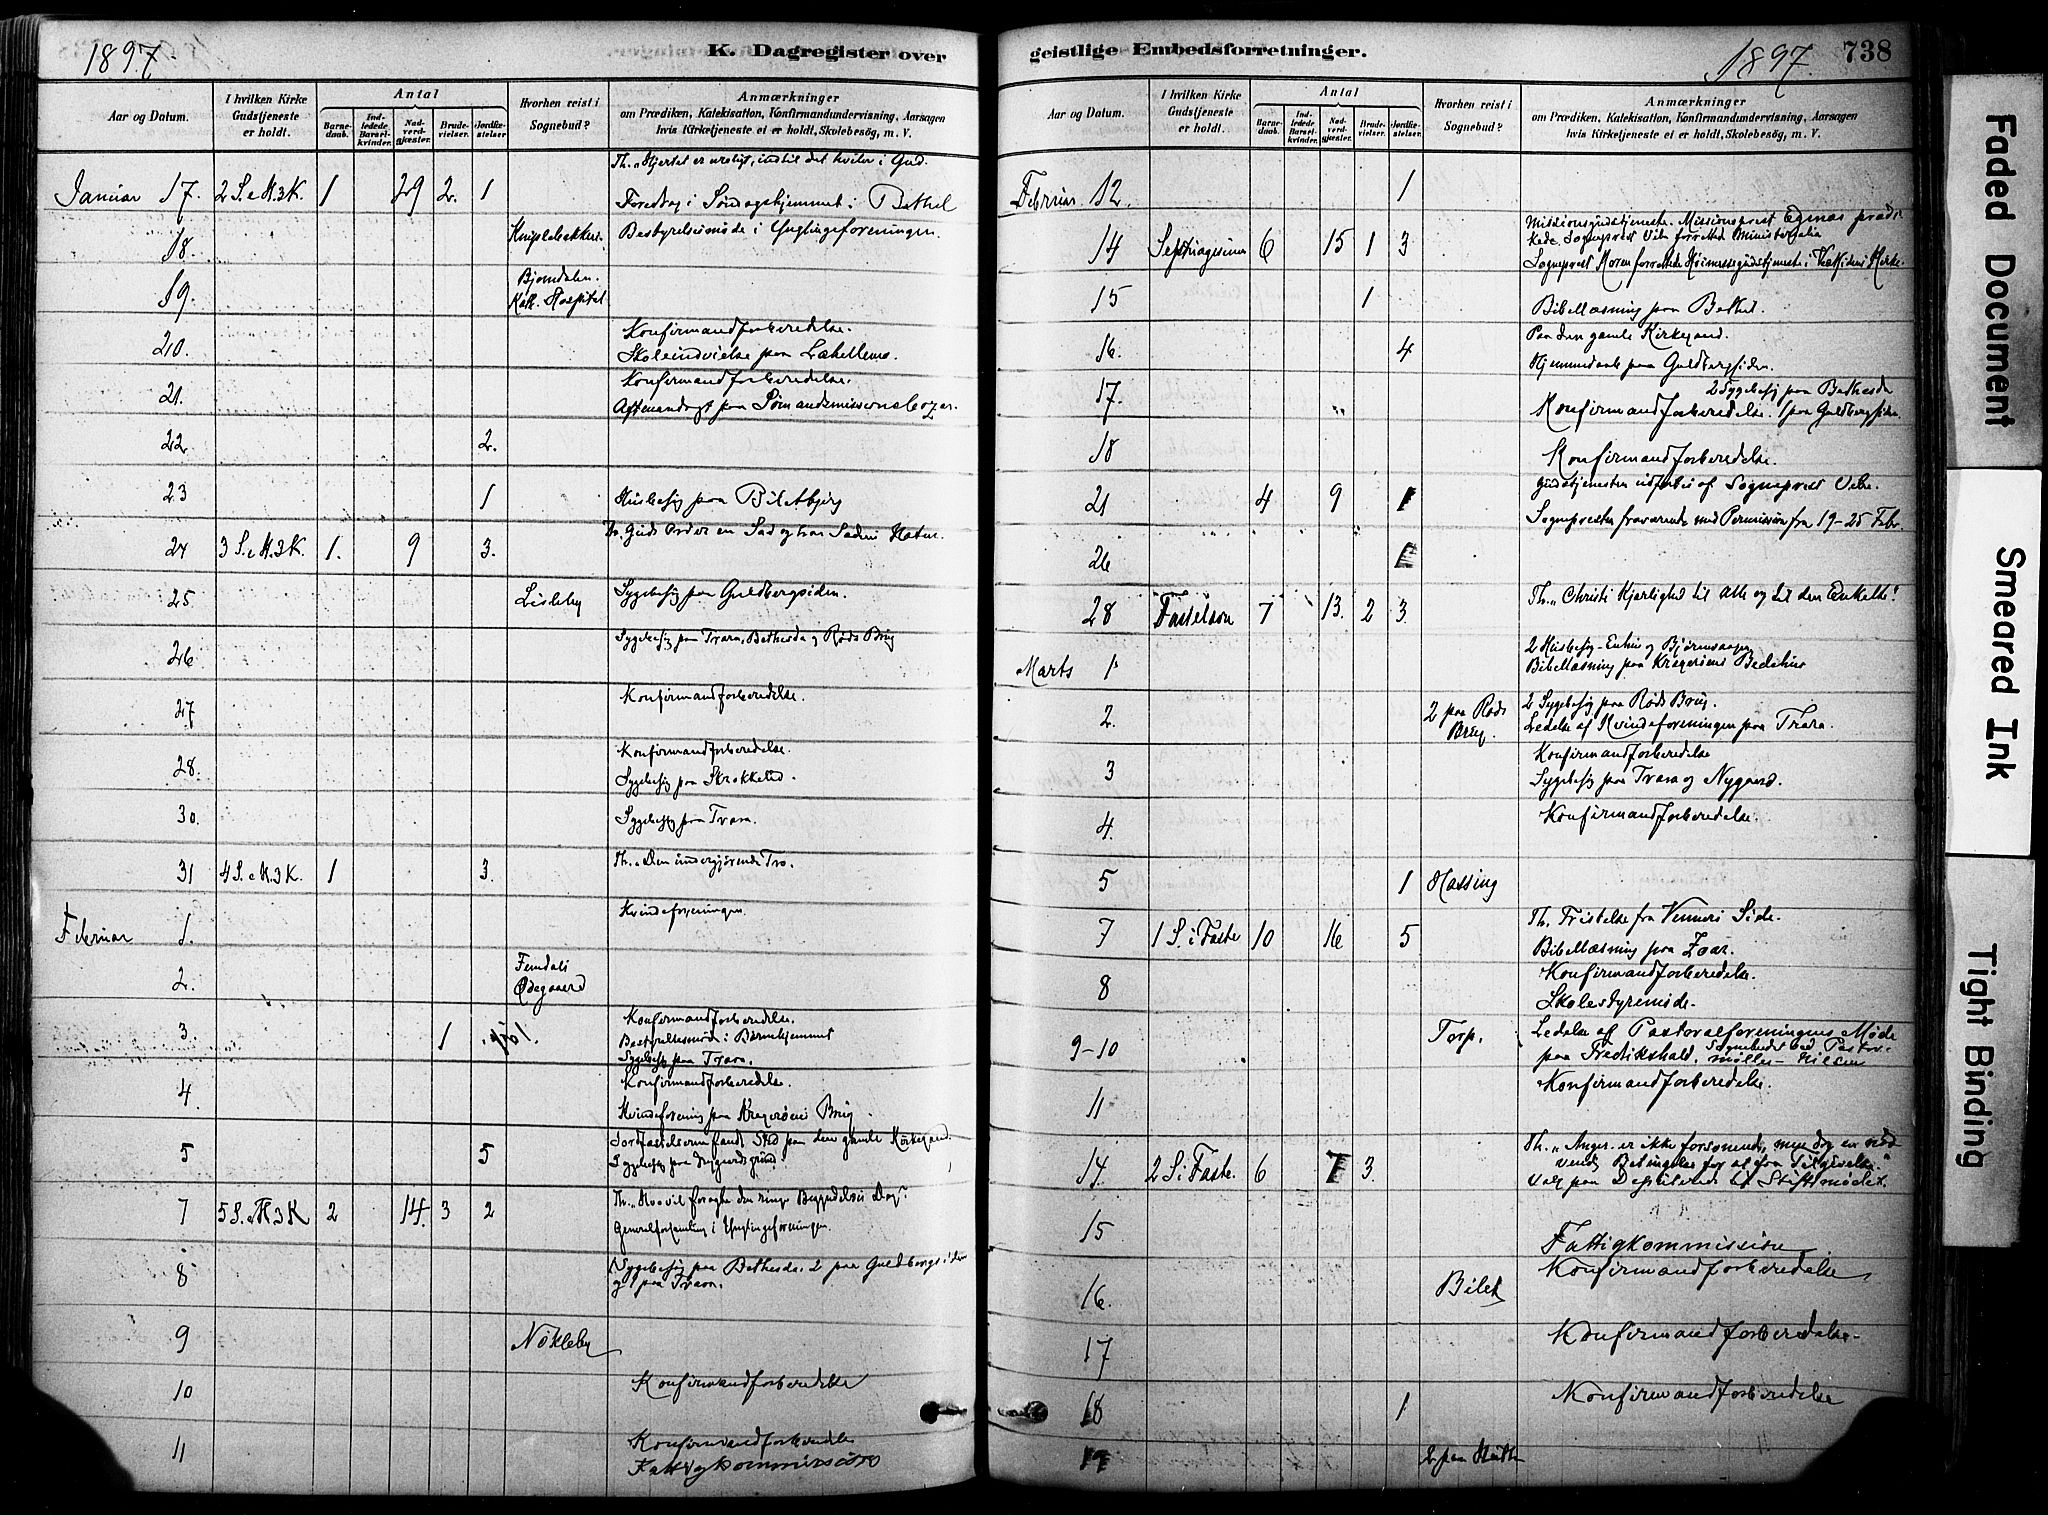 1897.
K. Dagregister over
Aar og Datum.
I hvilken Kirke Gudstjeneste er holdt.
Antal
Barnedaab.
Indledede Barselkvinder.
Nadverdgjæster.
Brudevielser.
Jordfæstelser
Hvorhen reist i Sognebud?
Anmærkninger
om Prædiken, Katekisation, Konfirmandundervisning, Aarsagen
hvis Kirketjeneste ei er holdt, Skolebesøg, m. V.
Th. "Hjertet er uroligt, indtil det hviler i Gud.
Januar 17. 2 S. e H.3K. 1 29 2. 1 Foredrag i Søndagshjemmet i Bethel
18. Bestyrelsesmøde i Ynglingeforeningen.
19. Bjørndalen. Kath. Hospital
20. Konfirmandforberedelse.
Skoleindvielse paa
21. Konfirmandforberedelse.
Aftenandagt paa Sømandsmissionsbazar.
22 2.
23 1 Husbesøg paa Biletbjerg
24 3 S. e H.3K. 1. 9 3. Th. Guds Ord er en Sæd og har Sædens Natur.
25 Lisleby Sygebesøg paa Guldbergsiden.
26 Sygebesøg paa Trara, Bethesda og Røds Brug
27 Konfirmandforberedelse.
28. Konfirmandforberedelse.
Sygebesøg paa
30. Sygebesøg paa Trara.
31 4 S. e H.3K. 1 3. Th. "Den undergjørende Tro.
Februar 1. Kvindeforeningen
2. Ødegaard
3 1 Konfirmandforberedelse.
Bestyrelsesmøde i Børnehjemmet
Sygebesøg paa Trara.
4. Konfirmandforberedelse.
Kvindeforening paa Kragerøens Brug.
5 5 Jordfæstelserne fandt Sted paa den gamle Kirkegaard.
Sygebesøg paa
7 5 S. e H.3K 2 14. 3 2 Th. "Hvo vil foragte den ringe Begyndelses Dag".
Generalforsamling i Ynglingeforeningen.
8 1 Sygebesøg paa Bethesda, 2 paa Guldbergsiden
og 1 paa Trara.
9 Nøkleby
10 Konfirmandforberedelse
11 Konfirmandforberedelse
Fattigkommission
geistlige Embedsforretninger.
1897.
738
Aar og Datum.
I hvilken Kirke Gudstjeneste er holdt.
Antal
Barnedaab.
Indledede Barselkvinder.
Nadverdgjæster.
Brudevielser.
Jordfæstelser.
Hvorhen reist i Sognebud?
Anmærkninger
om Prædiken, Katekisation, Konfirmandundervisning, Aarsagen
hvis Kirketjeneste ei er holdt, Skolebesøg, m. V.
Februar 12. 1
Missionsgudstjeneste. Missionsprest Egenæs prædi-
14 Septuagesima 6 15 1 3 kede. Sogneprest Vibe forrettede Ministerialia
Sogneprest Horen forrettede Høimessegudstjeneste i Vestsidens Kirke.
15 1 Bibellæsning paa Bethel.
16. 4 Paa den gamle Kirkegaard.
Hjemmedaab paa Guldbergsiden.
17. 2 Sygebesøg paa Bethesda
Konfirmandforberedelse. 1 paa Guldbergsiden.
18 Konfirmandforberedelse.
21 4 9 1 Gudstjenesten udførtes af Sogneprest Vibe.
Sognepresten fraværende med Permission fra 19-25 Febr.
26
28 Fastelavn 7 13. 2 3. Th. "Christi Kjærlighed til Alle og til den Enkelte!
Marts 1. 2 Husbesøg-
Bibellæsning paa Kragerøens Bedehus
2. 2 paa Røds Brug. 2 Sygebesøg paa Røds Brug.
Ledelse af Kvindeforeningen paa Trara.
3 Konfirmandforberedelse
Sygebesøg paa Trara og Nygaard.
4. Konfirmandforberedelse.
5 1 Hassing
7 1 S. i Faste 10 16 5 Th. Fristelse fra Venners Side.
Bibellæsning paa Zoar.
8 Konfirmandforberedelse.
Skolestyremøde.
9-10 Torp. Ledelse af Pastoralforeningens Møde
paa Fredrikshald. Sognebudet ved Pastor
Møller-Nilsen
11 Konfirmandforberedelse.
14. 2 S. i Faste. 6 7 3. Th. "Anger er ikke forsonende, men dog en nød-
vendig Betingelse for at faa Tilgivelse."
Valg paa Deputerede til Stiftsmødet.
15 Fattigkommission
16. Bilet Konfirmandforberedelse
17 Konfirmandforberedelse.
18 1 Konfirmandforberedelse
19 2 paa
Faded Document
Smeared Ink
Tight Binding